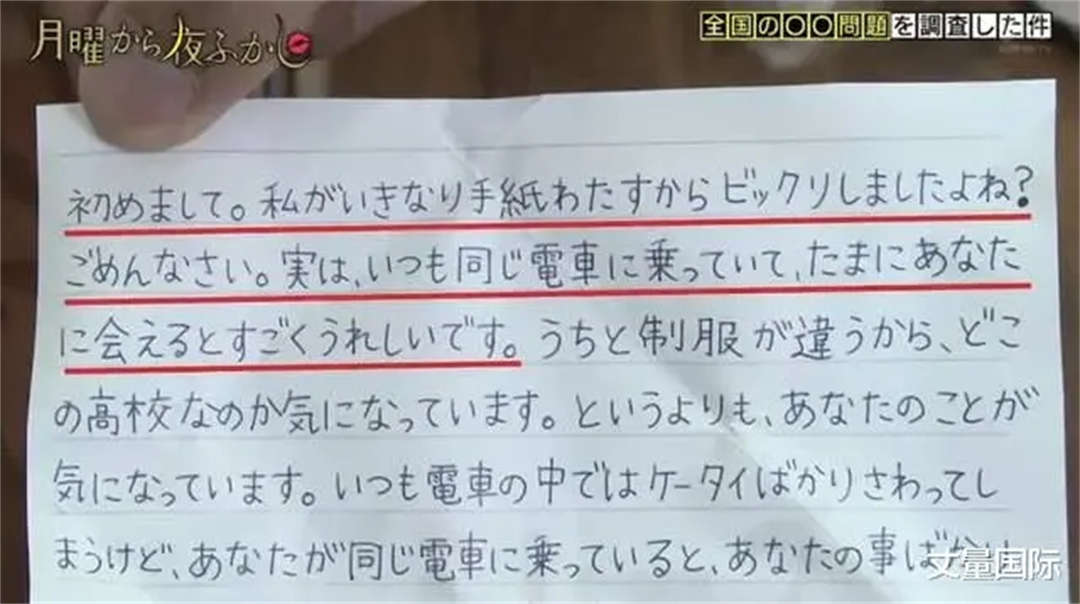 月曜から夜ふかし
全国の〇〇問題を調査した件
初めまして。私がいきなり手紙わたすからビックリしましたよね?
ごめんなさい。実は、いつも同じ電車に乗っていて、たまにあなた
に会えるとすごくうれしいです。うちと制服が違うから、どこ
の高校なのか気になっています。というよりも、あなたのことが
気になっています。いつも電車の中ではケータイばかりさわってし
まうけど、あなたが同じ電車に乗っていると、あなたの事ば
丈量国际